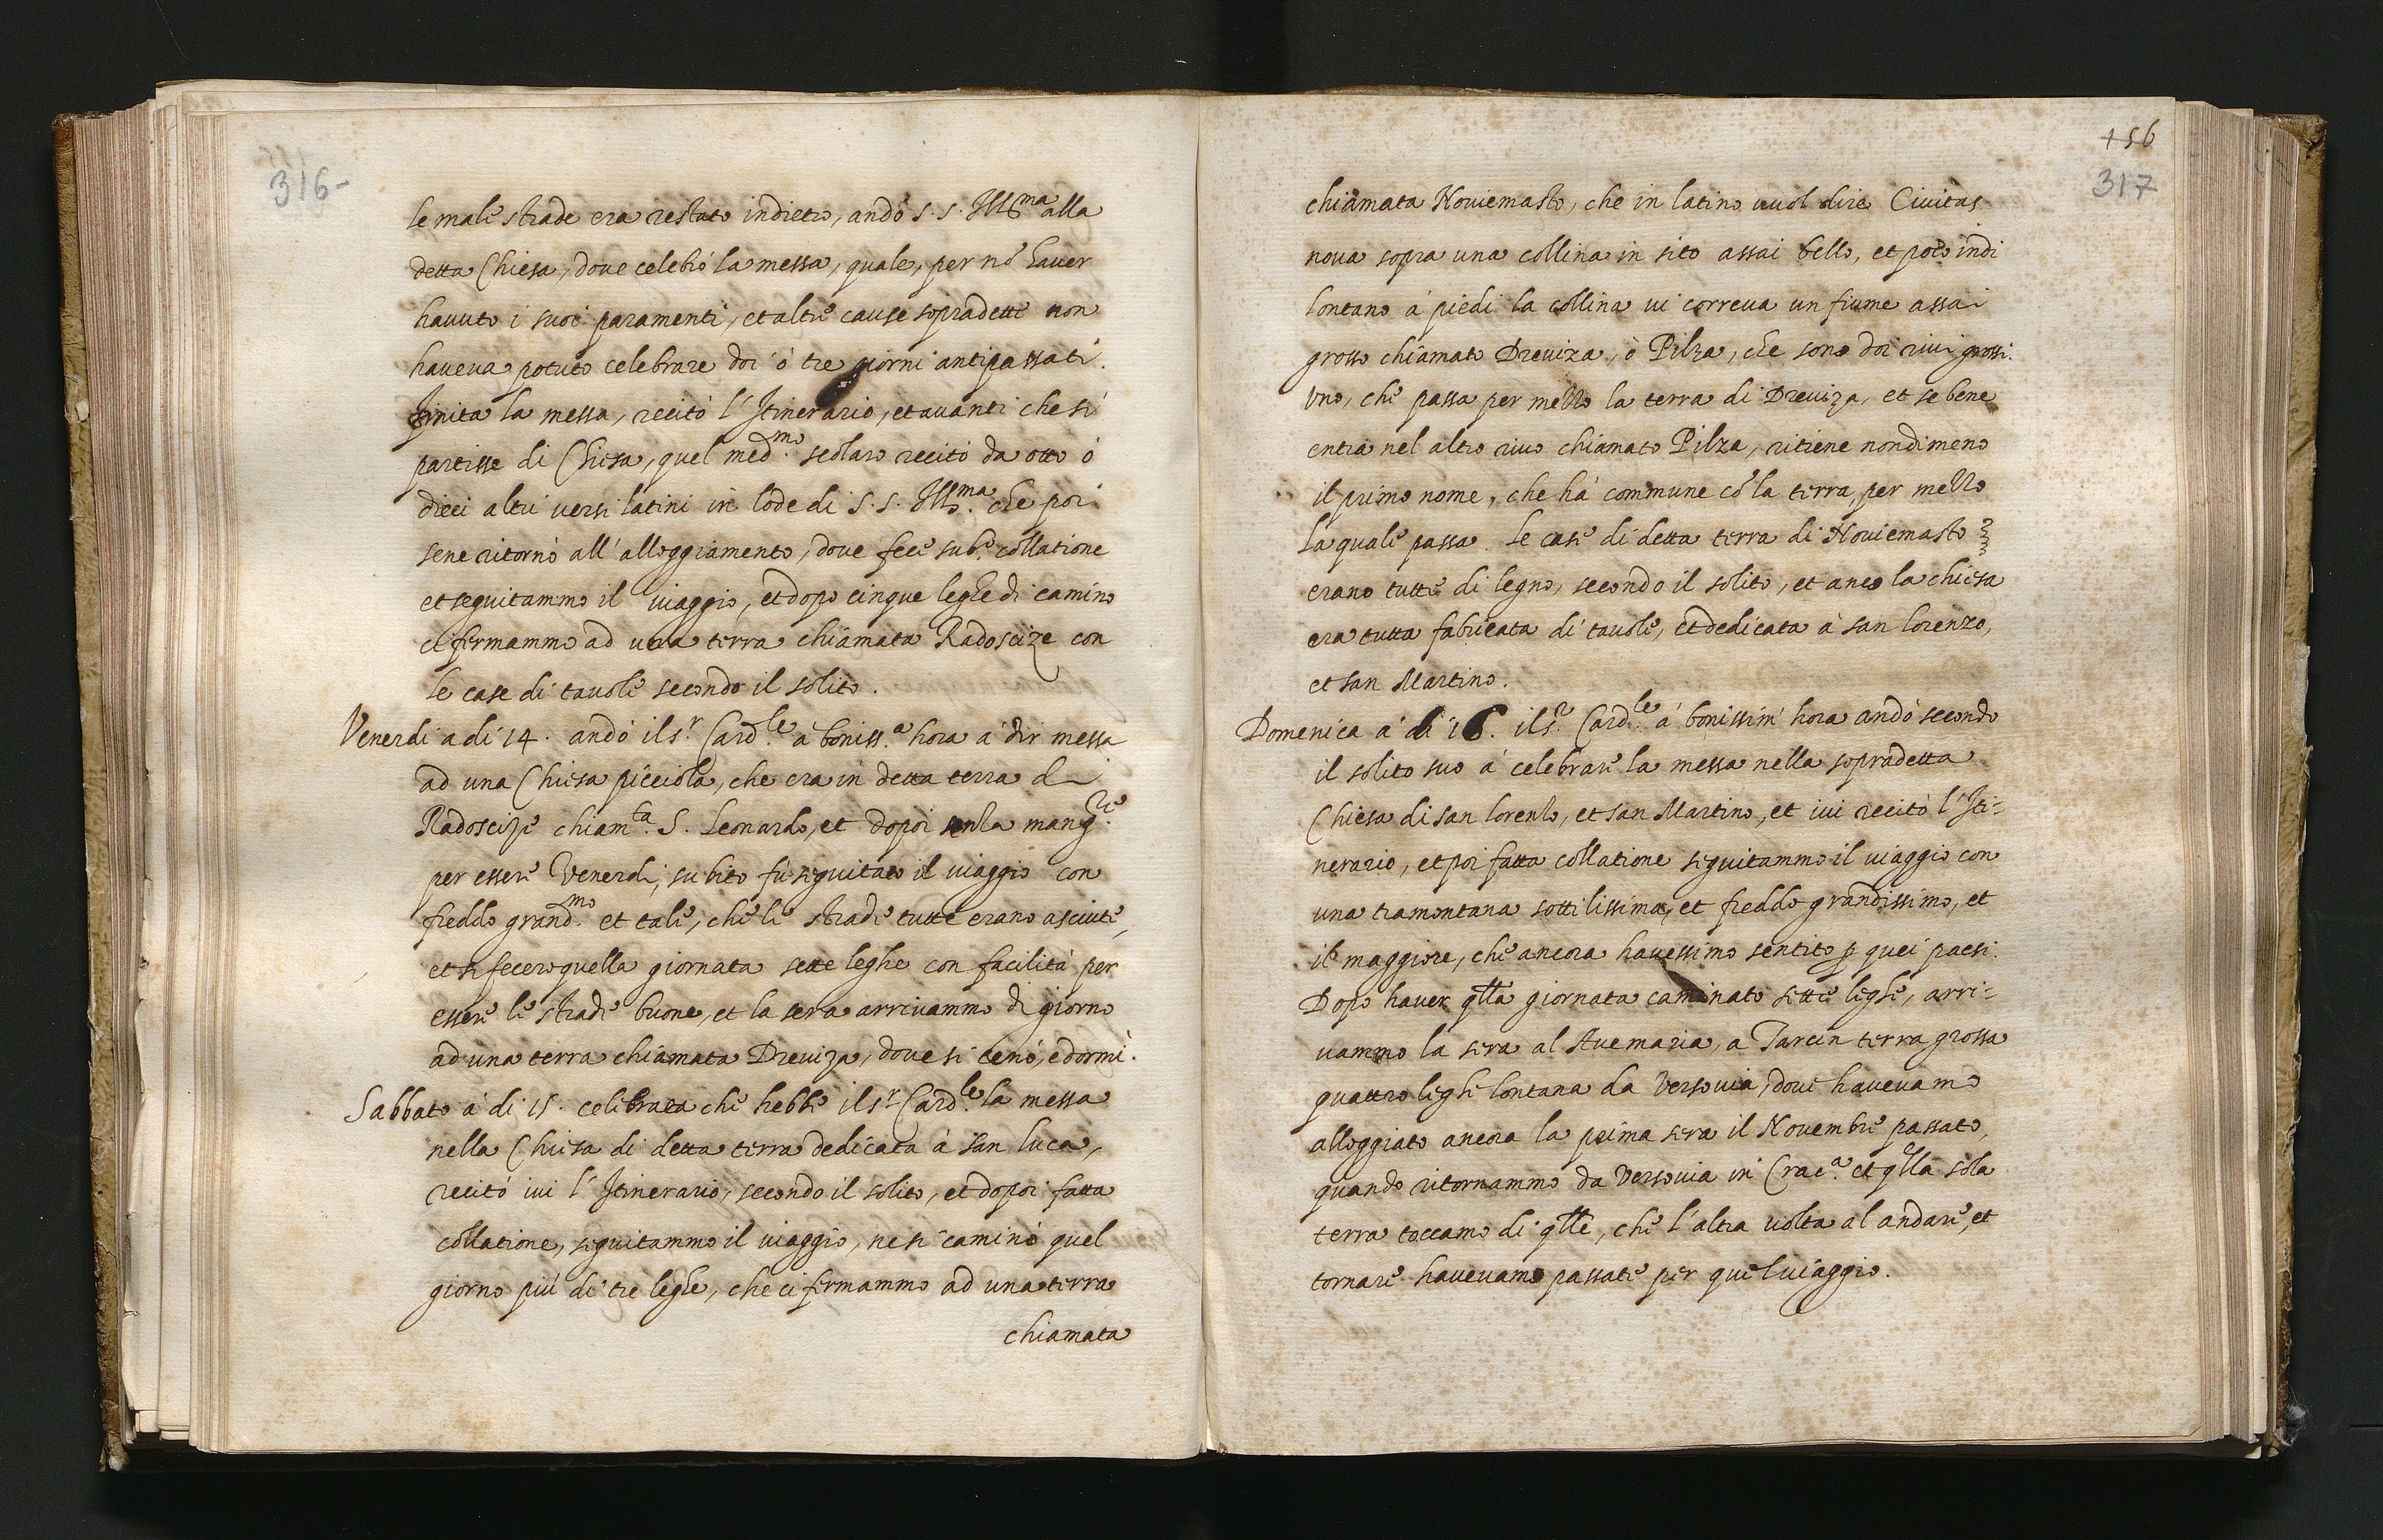 316-
le male strade era restato indietro, andò S. S. Ill.ma alla
detta Chiesa, dove celebrò la messa, quale, per nō haver
havuto i suoi paramenti, et altre cause sopradette non
haveva potuto celebrare doi ò tre giorni antipassati.
Finita la messa, recitò l'Itinerario, et avanti che si
partisse di Chiesa, quel med.mo scolaro recitò da otto ò
dieci altri versi latini in lode di S. S. Ill.ma che poi
sene ritornò all'alloggiamento, dove fece sub.o collatione
et seguitammo il viaggio, et dopo cinque leghe di camino
ci fermammo ad una terra chiamata Radoscize con
le case di tavole secondo il solito.
Venerdi a di 14. andò il s.r Card.le à boniss.a hora à dir messa
ad una Chiesa picciola, che era in detta terra di
Radoscize chiam.ta S. Leonardo, et dopoi senza mang.re
per essere Venerdi, subito fù seguitato il viaggio con
freddo grand.mo et tale, che le strade tutte erano asciute,
et si fecero quella giornata sette leghe con facilità per
essere le strade buone, et la sera arrivammo di giorno
ad una terra chiamata Dreviza, dove si cenò, e dormì.
Sabbato à di 15. celebrata che hebbe il s.r Card.le la messa
nella Chiesa di detta terra dedicata à san Luca,
recitò ivi l'Itinerario, secondo il solito, et dopoi fatta
collatione, seguitammo il viaggio, ne si caminò quel
giorno più di tre leghe, che ci fermammo ad una terra
chiamata
156
317
chiamata Noviemasto, che in latino vuol dire Civitas
nova sopra una collina in sito assai bello, et poco indi
lontano à piedi la collina vi correva un fiume assai
grosso chiamato Dreviza, ò Pilza, che sono doi rivi grossi.
Uno, che passa per mezzo la terra di Dreviza, et se bene
entra nel altro rivo chiamato Pilza, ritiene nondimeno
il primo nome, che hà commune cō la terra, per mezzo
la quale passa. Le case di detta terra di Noviemasto
erano tutte di legno, secondo il solito, et anco la chiesa
era tutta fabricata di tavole, et dedicata à san Lorenzo,
et san Martino.
Domenica à di 16. il s.r Card.le à bonissim' hora andò secondo
il solito suo à celebrare la messa nella sopradetta
Chiesa di san Lorenzo, et san Martino, et ivi recitò l'Iti=
nerario, et poi fatta collatione seguitammo il viaggio con
una tramontana sottilissima, et freddo grandissimo, et
il maggiore, che ancora havessimo sentito ꝑ quei paesi.
Dopo haver q̄lla giornata caminato sette leghe, arri=
vammo la sera al Avemaria, a Tarcin terra grossa
quattro leghe lontana da Versovia, dove havevamo
alloggiato ancora la prima sera il Novembre passato,
quando ritornammo da Versovia in Crac.a et q̄lla sola
terra toccamo di q̄lle, che l'altra volta al andare, et
tornare havevamo passate per quel viaggio.